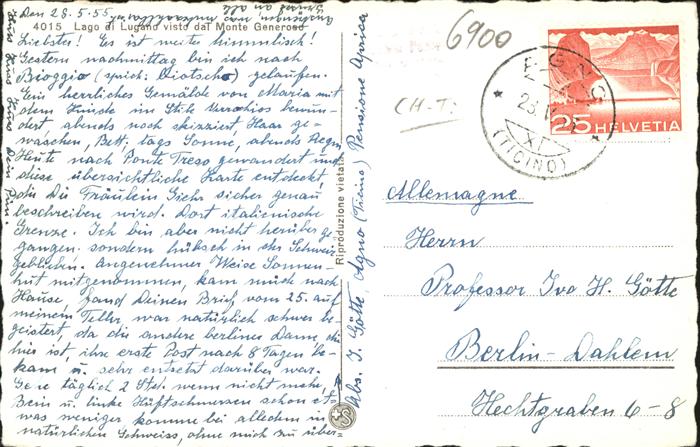 Den 28.5.55.
4015 Lago di Lugano visto dal Monte Generoso
Liebster! Es ist weite himmlisch!
Gestern nachmittag bin ich nach
Bioggio (sprich: Diotscho) gelaufen.
Ein herrliches Gemälde von Maria mit
dem Kinde im Stile bewun-
dert abends noch skizziert, Haar ge-
waschen, Bett, tags Sonne, abends Regen
Heute nach Ponte Tresa gewandert und
diese übersichtliche Karte entdeckt
die Du Fräulein sicher genau
beschreiben wird. Dort italienische
Grenze. Ich bin aber nicht herüber ge
gangen sondern hübsch in der Schweiz
geblieben. Angenehmer Weise Sonnen-
hut mitgenommen, kam müde nach
Hause, fand Deinen Brief vom 25. auf
meinem Teller, war natürlich schwer be
geistert, da die andere berliner Dame, die
hier ist, ihre erste Post nach 8 Tagen be-
kam u. sehr entsetzt darüber war.
Gehe täglich 2 Std. wenn nicht mehr,
Bein u. linke Hüftschmerzen schon et-
was weniger komme bei alledem in
natürlichen Schweiss, ohne mich zu über-
Riproduzione vietata
Abs. I. Götte, Agno (Ticino) Pensione Aprica
6900
CH-T:
(TICINO)
25 HELVETIA
Allemagne
Herrn
Professor Ivo H. Götte
Berlin-Dahlem
Hechtgraben 6-8